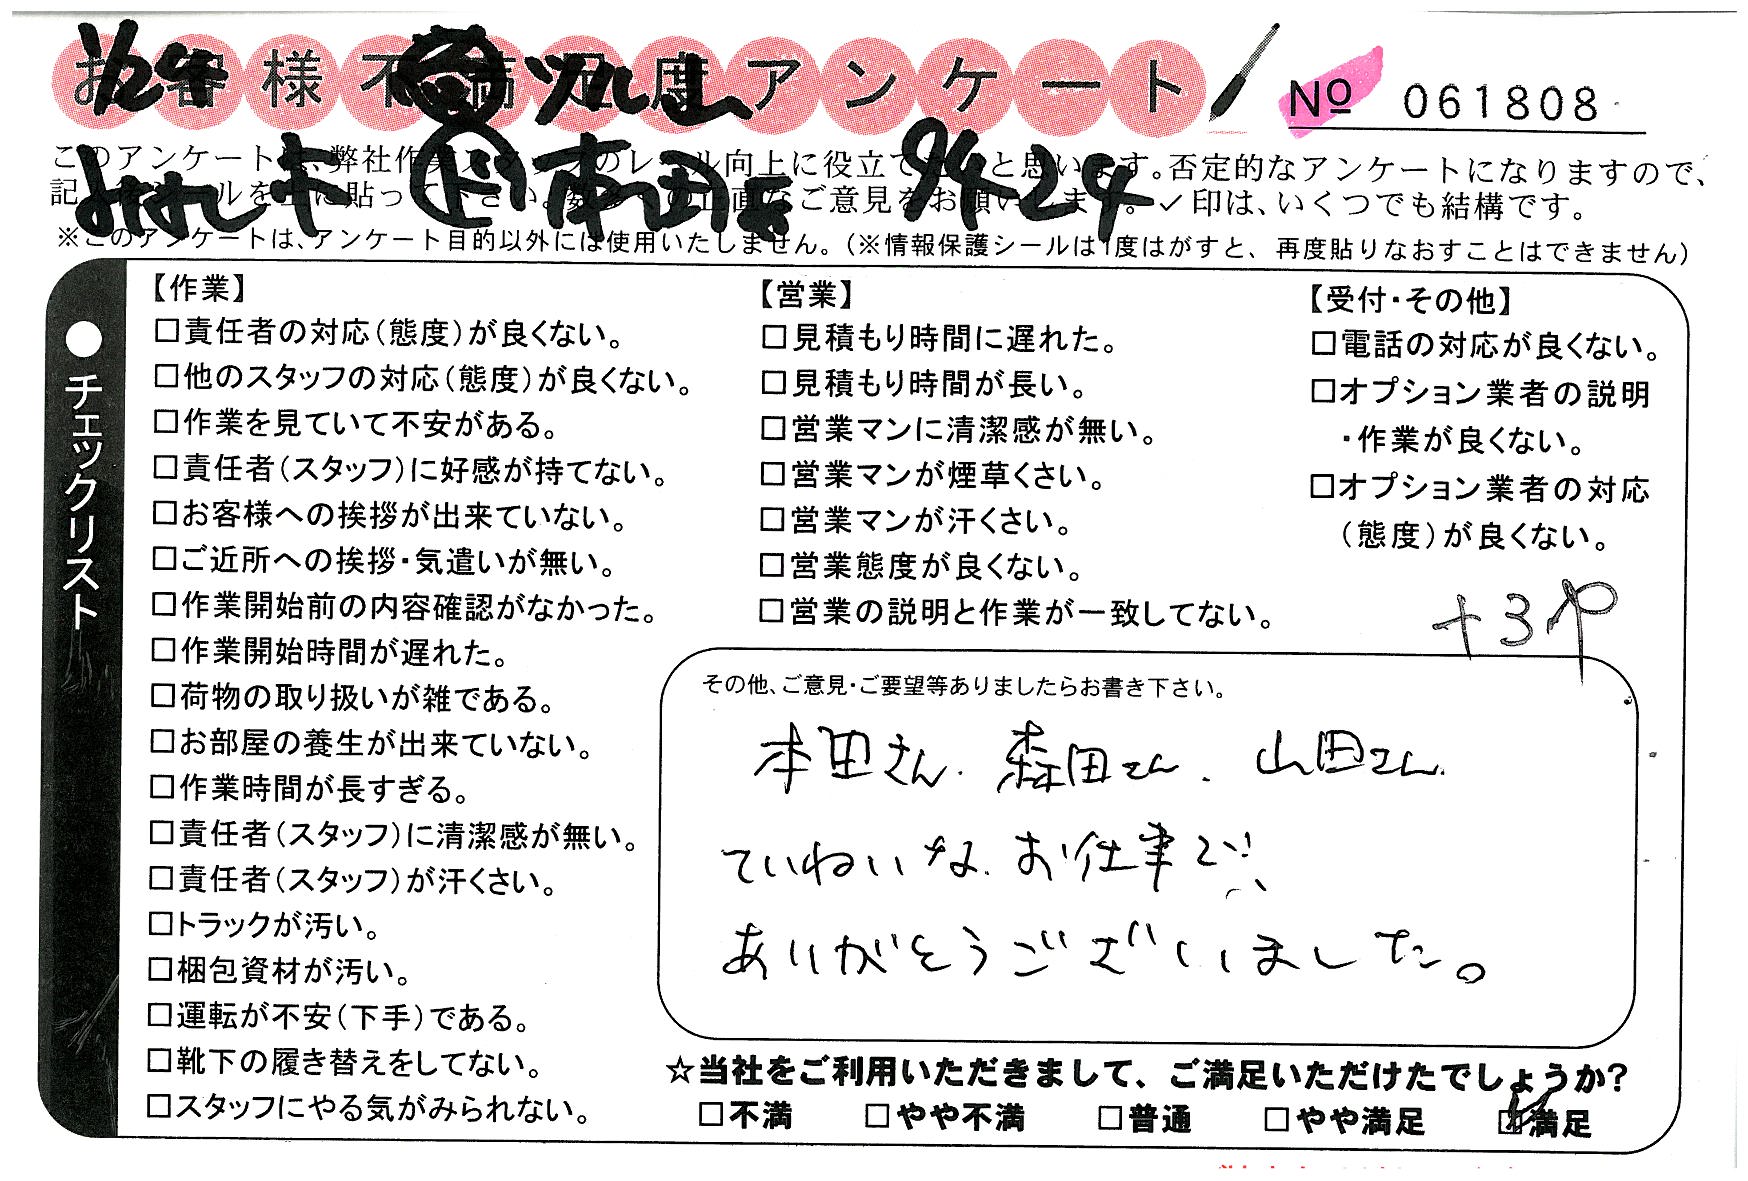 お客様不満足度アンケート
№ 061808
1/24
本田 9424
このアンケートは、弊社作業スタッフのレベル向上に役立てたいと思います。否定的なアンケートになりますので、
記入後シールを上に貼って下さい。数多くの正直なご意見をお願いします。✓印は、いくつでも結構です。
※このアンケートは、アンケート目的以外には使用いたしません。(※情報保護シールは1度はがすと、再度貼りなおすことはできません)
●チェックリスト
【作業】
□責任者の対応(態度)が良くない。
□他のスタッフの対応(態度)が良くない。
□作業を見ていて不安がある。
□責任者(スタッフ)に好感が持てない。
□お客様への挨拶が出来ていない。
□ご近所への挨拶・気遣いが無い。
□作業開始前の内容確認がなかった。
□作業開始時間が遅れた。
□荷物の取り扱いが雑である。
□お部屋の養生が出来ていない。
□作業時間が長すぎる。
□責任者(スタッフ)に清潔感が無い。
□責任者(スタッフ)が汗くさい。
□トラックが汚い。
□梱包資材が汚い。
□運転が不安(下手)である。
□靴下の履き替えをしてない。
□スタッフにやる気がみられない。
【営業】
□見積もり時間に遅れた。
□見積もり時間が長い。
□営業マンに清潔感が無い。
□営業マンが煙草くさい。
□営業マンが汗くさい。
□営業態度が良くない。
□営業の説明と作業が一致してない。
【受付・その他】
□電話の対応が良くない。
□オプション業者の説明
・作業が良くない。
□オプション業者の対応
(態度)が良くない。
+3P
その他、ご意見・ご要望等ありましたらお書き下さい。
本田さん、森田さん、山田さん
ていねいな お仕事で、
ありがとうございました。
☆当社をご利用いただきまして、ご満足いただけたでしょうか?
□不満 □やや不満 □普通 □やや満足 ☑満足